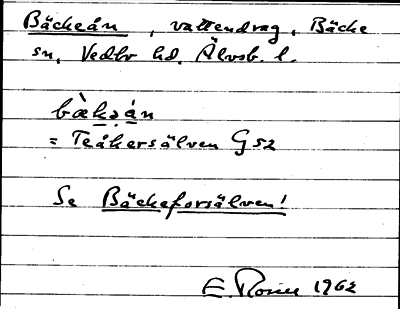 Bäckeån, vattendrag, Bäcke
sn, Vedbo hd. Älvsb. l.
bækəån
= Teåkersälven G52
Se Bäckeforsälven!
E. Rosén 1962